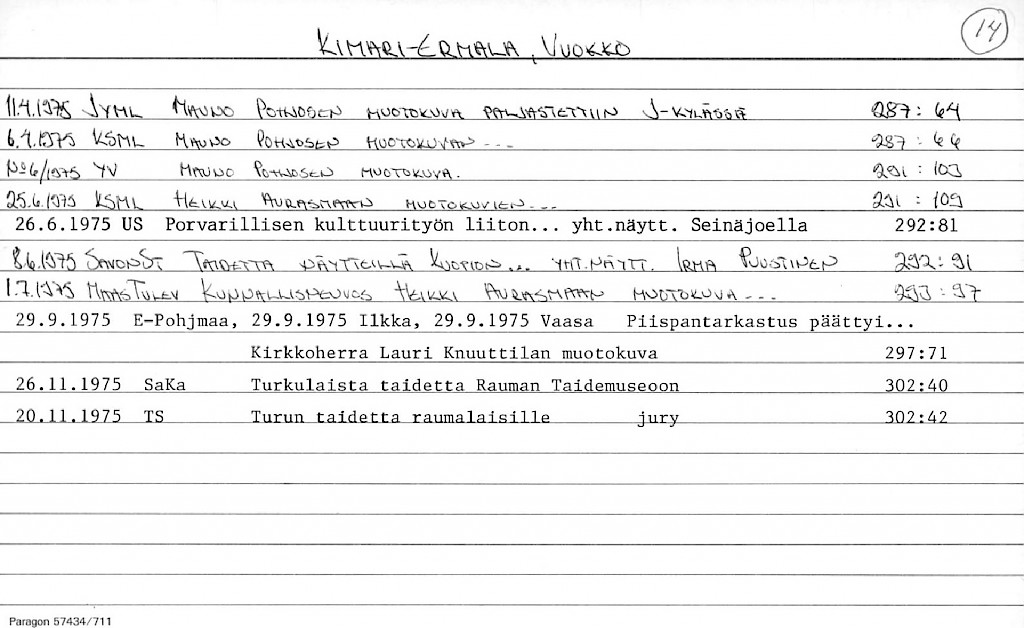 14
KIMARI-ERMALA, VUOKKO
11.4.1975 JYML MAUNO POHJOSEN MUOTOKUVA PALJASTETTIIN J-KYLÄSSÄ 287: 64
6.4.1975 KSML MAUNO POHJOSEN MUOTOKUVAN --- 287: 66
No 6/1975 YV MAUNO POHJOSEN MUOTOKUVA. 291: 103
25.6.1975 KSML HEIKKI AURASMAAN MUOTOKUVIEN --- 291: 109
26.6.1975 US Porvarillisen kulttuurityön liiton... yht.näytt. Seinäjoella 292:81
8.6.1975 SAVONST TAIDETTA NÄYTTEILLÄ KUOPION... YHT.NÄYTT. IRMA PUUSTINEN 292: 91
1.7.1975 MAASTULEV KUNNALLISNEUVOS HEIKKI AURASMAAN MUOTOKUVA --- 293: 97
29.9.1975 E-Pohjmaa, 29.9.1975 Ilkka, 29.9.1975 Vaasa Piispantarkastus päättyi...
Kirkkoherra Lauri Knuuttilan muotokuva 297:71
26.11.1975 SaKa Turkulaista taidetta Rauman Taidemuseoon 302:40
20.11.1975 TS Turun taidetta raumalaisille jury 302:42
Paragon 57434/711